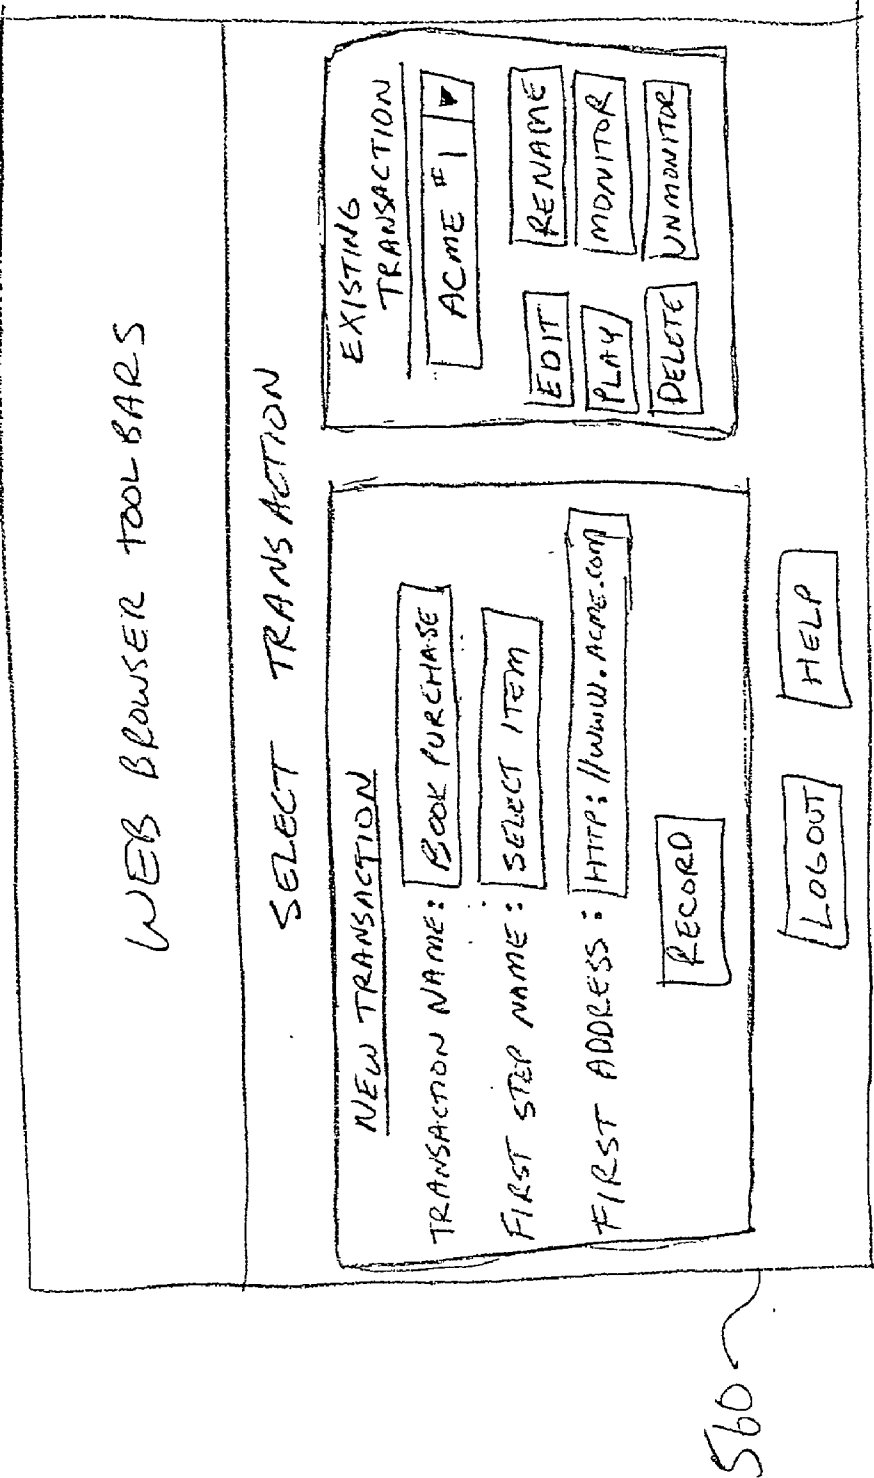 WEB BROWSER TOOLBARS
SELECT TRANSACTION
NEW TRANSACTION
TRANSACTION NAME: BOOK PURCHASE
FIRST STEP NAME: SELECT ITEM
FIRST ADDRESS: HTTP://WWW.ACME.COM
RECORD
EXISTING
TRANSACTION
ACME #1
EDIT RENAME
PLAY MONITOR
DELETE UNMONITOR
LOGOUT HELP
560